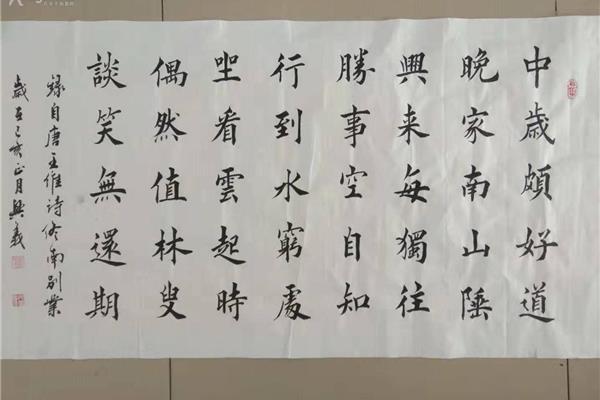 中歲頗好道
晚家南山陲
興来每獨往
勝事空自知
行到水窮處
坐看雲起時
偶然值林叟
談笑無還期
錄自唐王維詩終南別業
歲在己亥正月興義